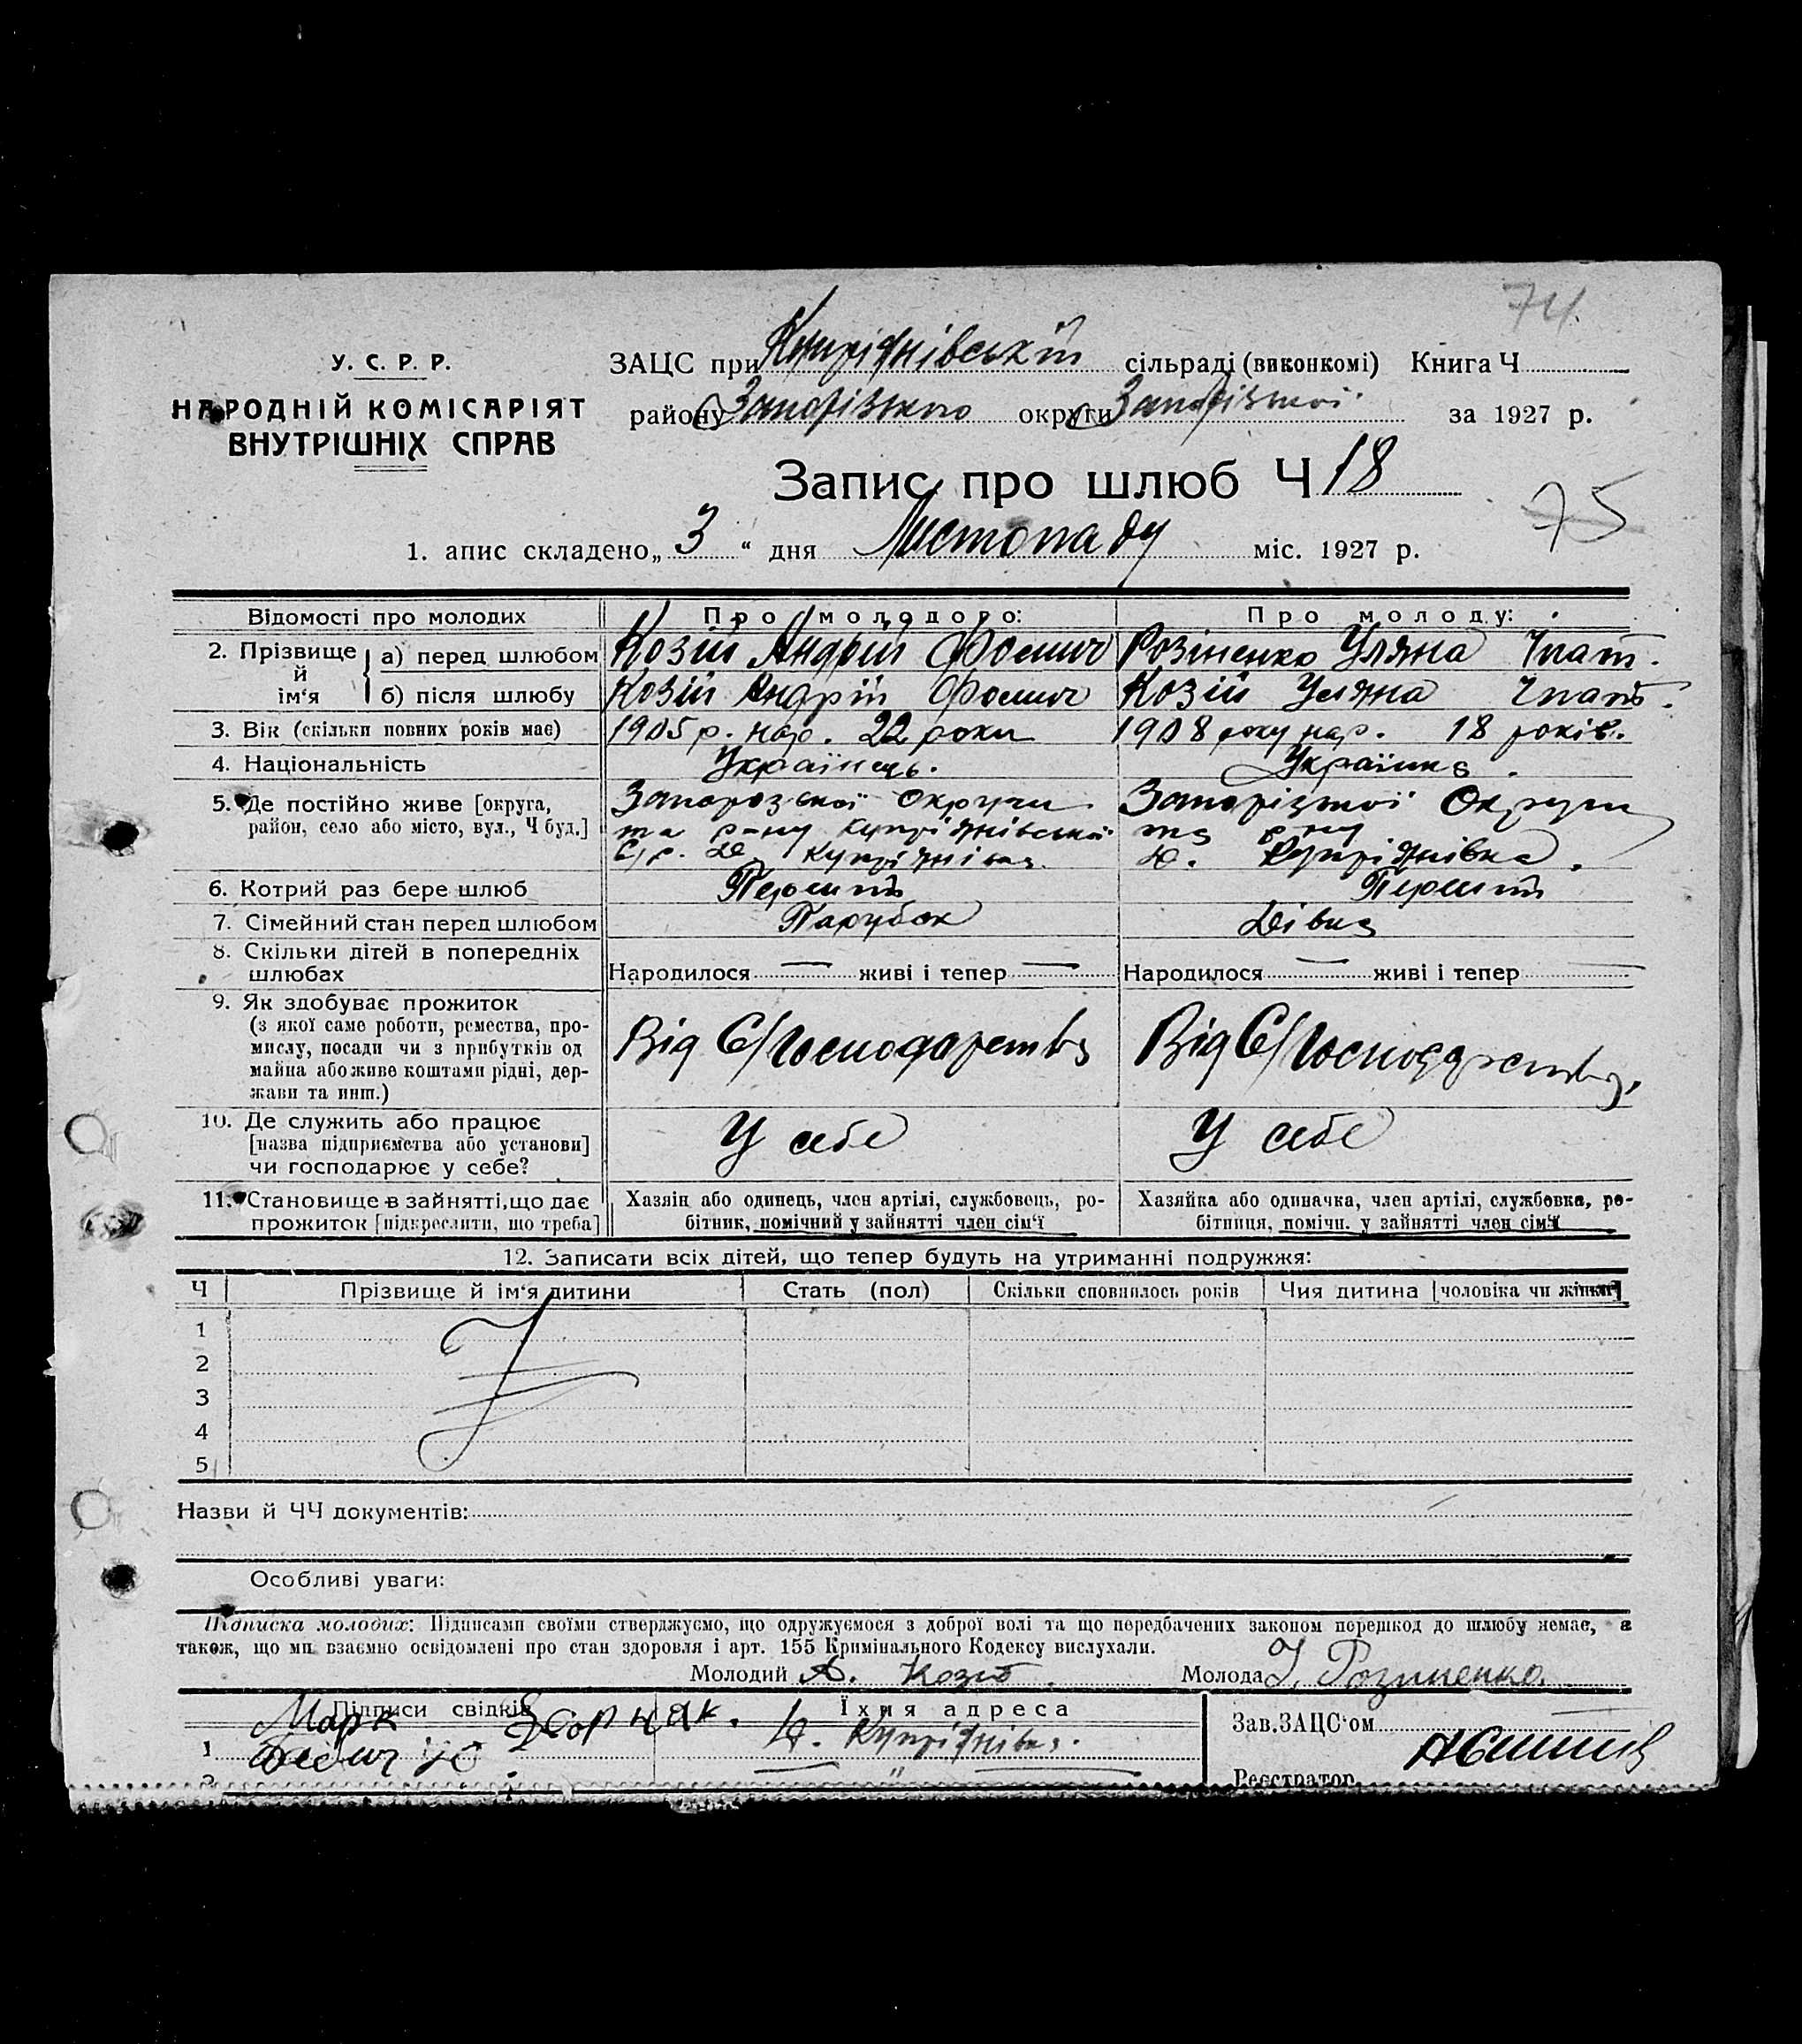 74.
У. С. Р. Р.
НАРОДНІЙ КОМІСАРІЯТ
ВНУТРІШНІХ СПРАВ
ЗАЦС при Купріянівській сільраді (виконкомі) Книга Ч
району Запорізького округи Запорізької за 1927 р.
Запис про шлюб Ч 18
75
1. апис складено „ 3 “ дня Листопаду міс. 1927 р.
Відомості про молодих Про молодого: Про молоду:
2. Прізвище й ім‘я а) перед шлюбом Козій Андрій Фомич Розіненко Уляна Ігнат.
б) після шлюбу Козій Андрій Фомич Козій Уляна Ігнат.
3. Вік (скільки повних років має) 1905 р. нар. 22 роки 1908 року нар. 18 років.
4. Національність Українець. Українка.
5. Де постійно живе [округа, Запорозської Округи Запорізької Округи
район, село або місто, вул., Ч буд.] та р-ну Купріянівської та р-ну
С/р. Д Купріянівка. д. Купріянівка.
6. Котрий раз бере шлюб Перший Перший
7. Сімейний стан перед шлюбом Парубок Дівка
8. Скільки дітей в попередніх
шлюбах Народилося — живі і тепер — Народилося — живі і тепер —
9. Як здобуває прожиток
(з якої саме роботи, ремества, про-
мислу, посади чи з прибутків од
майна або живе коштами рідні, дер-
жави та инш.)
Від С/Господарства Від С/Господарства,
10. Де служить або працює
[назва підприємства або установи]
чи господарює у себе?
У себе У себе
11. Становище в зайнятті, що дає Хазяїн або одинець, член артілі, службовець, ро- Хазяйка або одиначка, член артілі, службовка, ро-
прожиток [підкреслити, що треба] бітник, помічний у зайнятті член сім‘ї бітниця, помічн. у зайнятті член сім‘ї
12. Записати всіх дітей, що тепер будуть на утриманні подружжя:
Ч Прізвище й ім‘я дитини Стать (пол) Скільки сповнилось років Чия дитина [чоловіка чи жінки]
1
2
3
4
5
Назви й ЧЧ документів:
Особливі уваги:
Підписка молодих: Підписами своїми стверджуємо, що одружуємося з доброї волі та що передбачених законом перешкод до шлюбу немає, а
також, що ми взаємно освідомлені про стан здоровля і арт. 155 Кримінального Кодексу вислухали.
Молодий А. Козій. Молода У. Розиненко.
Підписи свідків Їхня адреса
Марк
1 Д. Купріянівка.
Зав. ЗАЦС‘ом
2 — „ —
Реєстратор